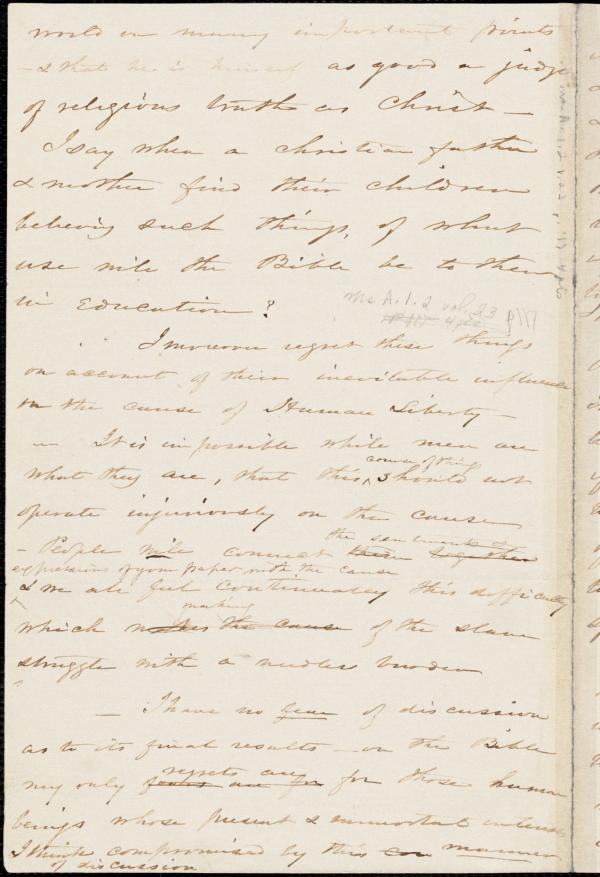 world on many important points
– & that he is himself as good a judge
of religious truth as Christ —
I say when a christian father
& mother find their children
believing such things, of what
use will the Bible be to them
in Education?
Ms. A. 1. 2 vol. 23 p 117
I moreover regret these things
on account of their inevitable influence
on the cause of Human Liberty –
– It is impossible while men are
what they are, that this course of things should not
operate injuriously on the cause
– People will connect the sentiments &
expressions of your paper with the cause
& we all feel continually this difficulty
which makes the cause making of the slave
struggle with a needless burden
– I have no fear of discussion
as to its final results – on the Bible
my only regrets are for those human
beings whose present & immortal interests
I think compromised by this manner
of discussion